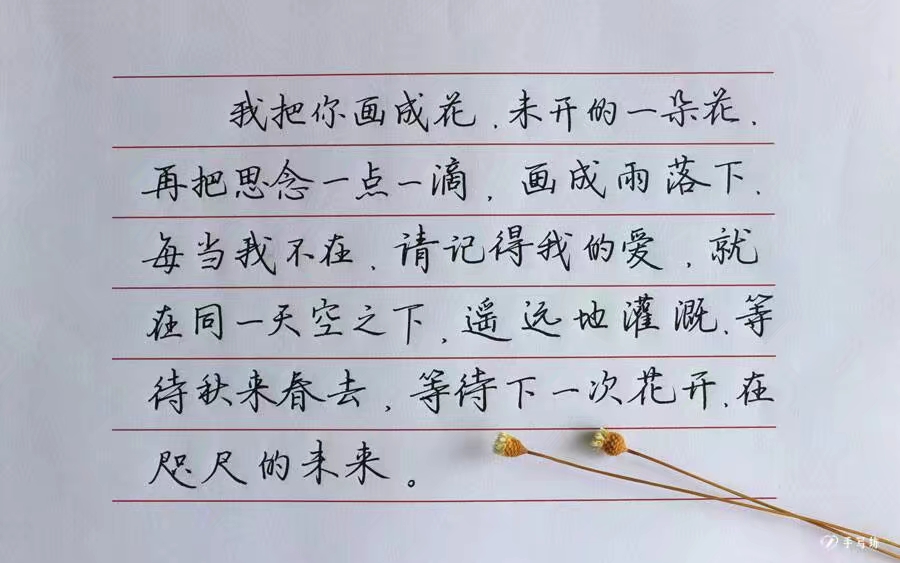 我把你画成花，未开的一朵花，
再把思念一点一滴，画成雨落下，
每当我不在，请记得我的爱，就
在同一天空之下，遥远地灌溉，等
待秋来春去，等待下一次花开，在
咫尺的未来。
手写坊